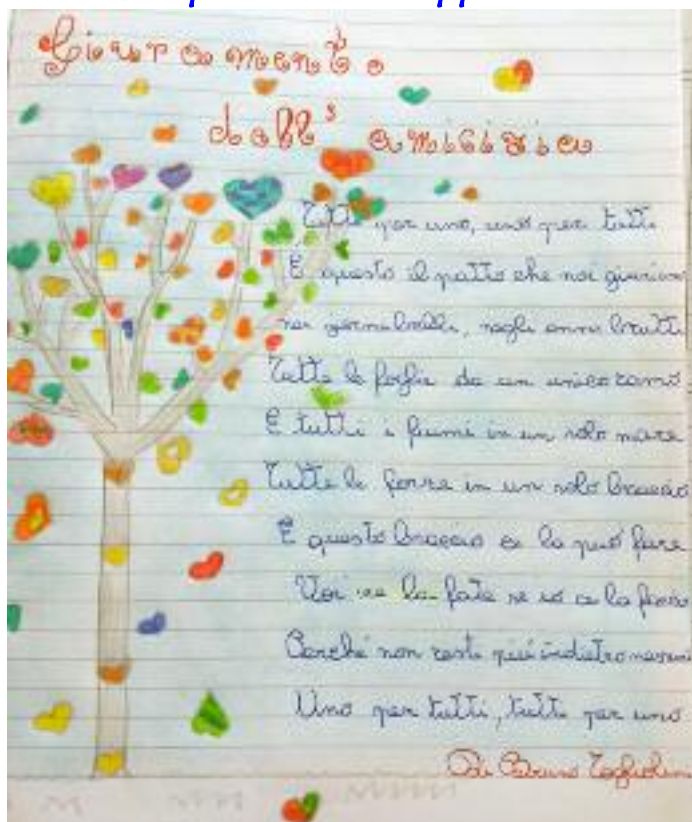 Giuramento
dell'amicizia
Tutti per uno, uno per tutti
È questo il patto che noi giuriam
nei giorni belli, negli anni brutti
Tutte le foglie da un unico ramo
E tutti i fiumi in un solo mare
Tutte le forze in un solo braccio
E questo braccio ce la può fare
Voi ce la fate se io ce la faccio
Perché non resti più indietro nessun
Uno per tutti, tutti per uno.
Di Bruno Tognolini